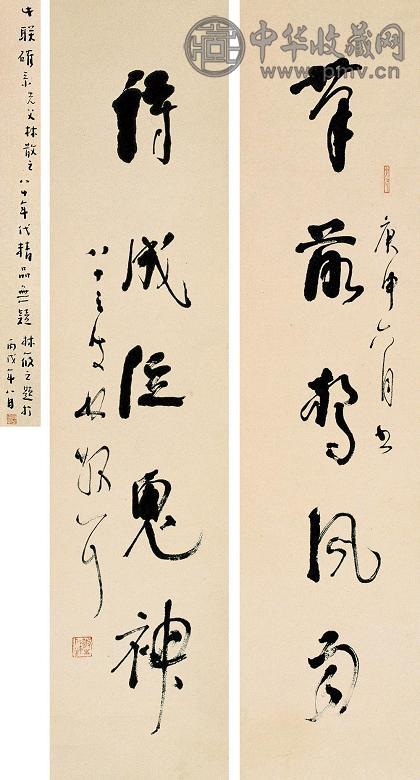 中华收藏网
www.pmv.cn
筆落驚風雨
庚申六月书
詩成泣鬼神
八十三叟林散耳
此联確系先父林散之八十年代精品無疑 林筱之题於
丙戌年八月